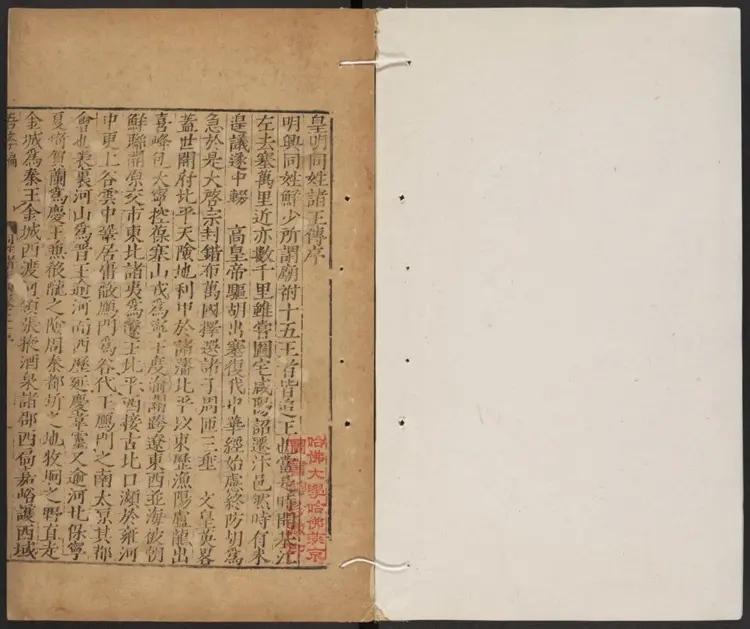 皇明同姓諸王傳序
明興同姓鮮少所謂廟祔十五王者皆追王也當是時開基江
左去塞萬里近亦數千里雖嘗圖宅咸陽詔遷汴邑然時有未
遑議遂中輟 高皇帝驅胡出塞復中華經始慮終防胡為
急於是大啓宗封錯布萬國擇選諸子周匝三垂 文皇英畧
蓋世開府北平天險地利甲於諸藩北平以東歷漁陽盧龍出
喜峰包大寧控葆塞山戎為寧王度渝關跨遼東西並海被朝
鮮聯開原交市東北諸夷為遼王北平西接古北口瀕於雍河
中更上谷雲中鞏居庸蔽鴈門為谷代王鴈門之南太原其都
會也表裏河山為晉王逾河而西歷延慶韋靈又逾河北保寧
夏倚賀蘭為慶王兼殽隴之險周秦都圻之地牧坰之野直走
金城為秦王金城西渡河領張掖酒泉諸郡西扃嘉峪護西域
吾學編
哈佛大學哈佛燕京
圖書館珍藏印